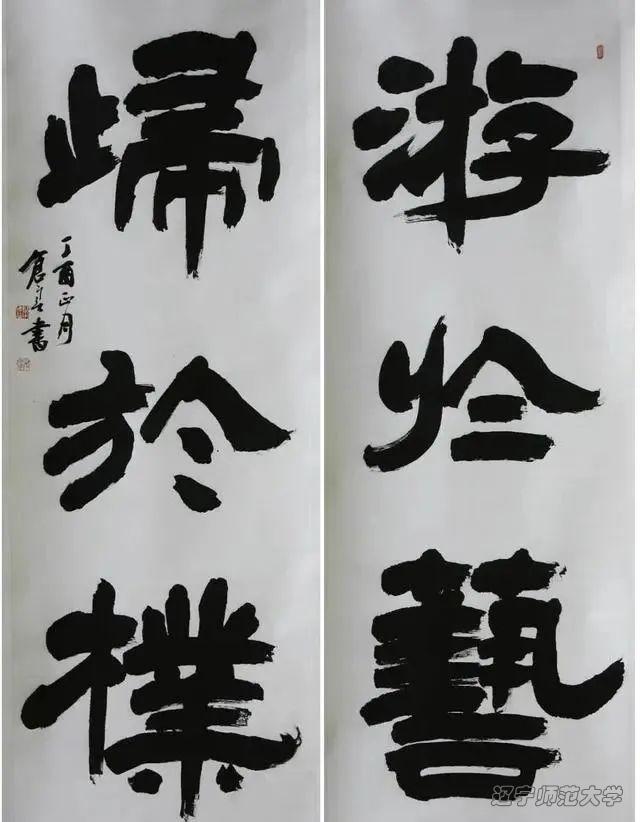 游於藝
歸於樸
丁酉正月
書
辽宁师范大学